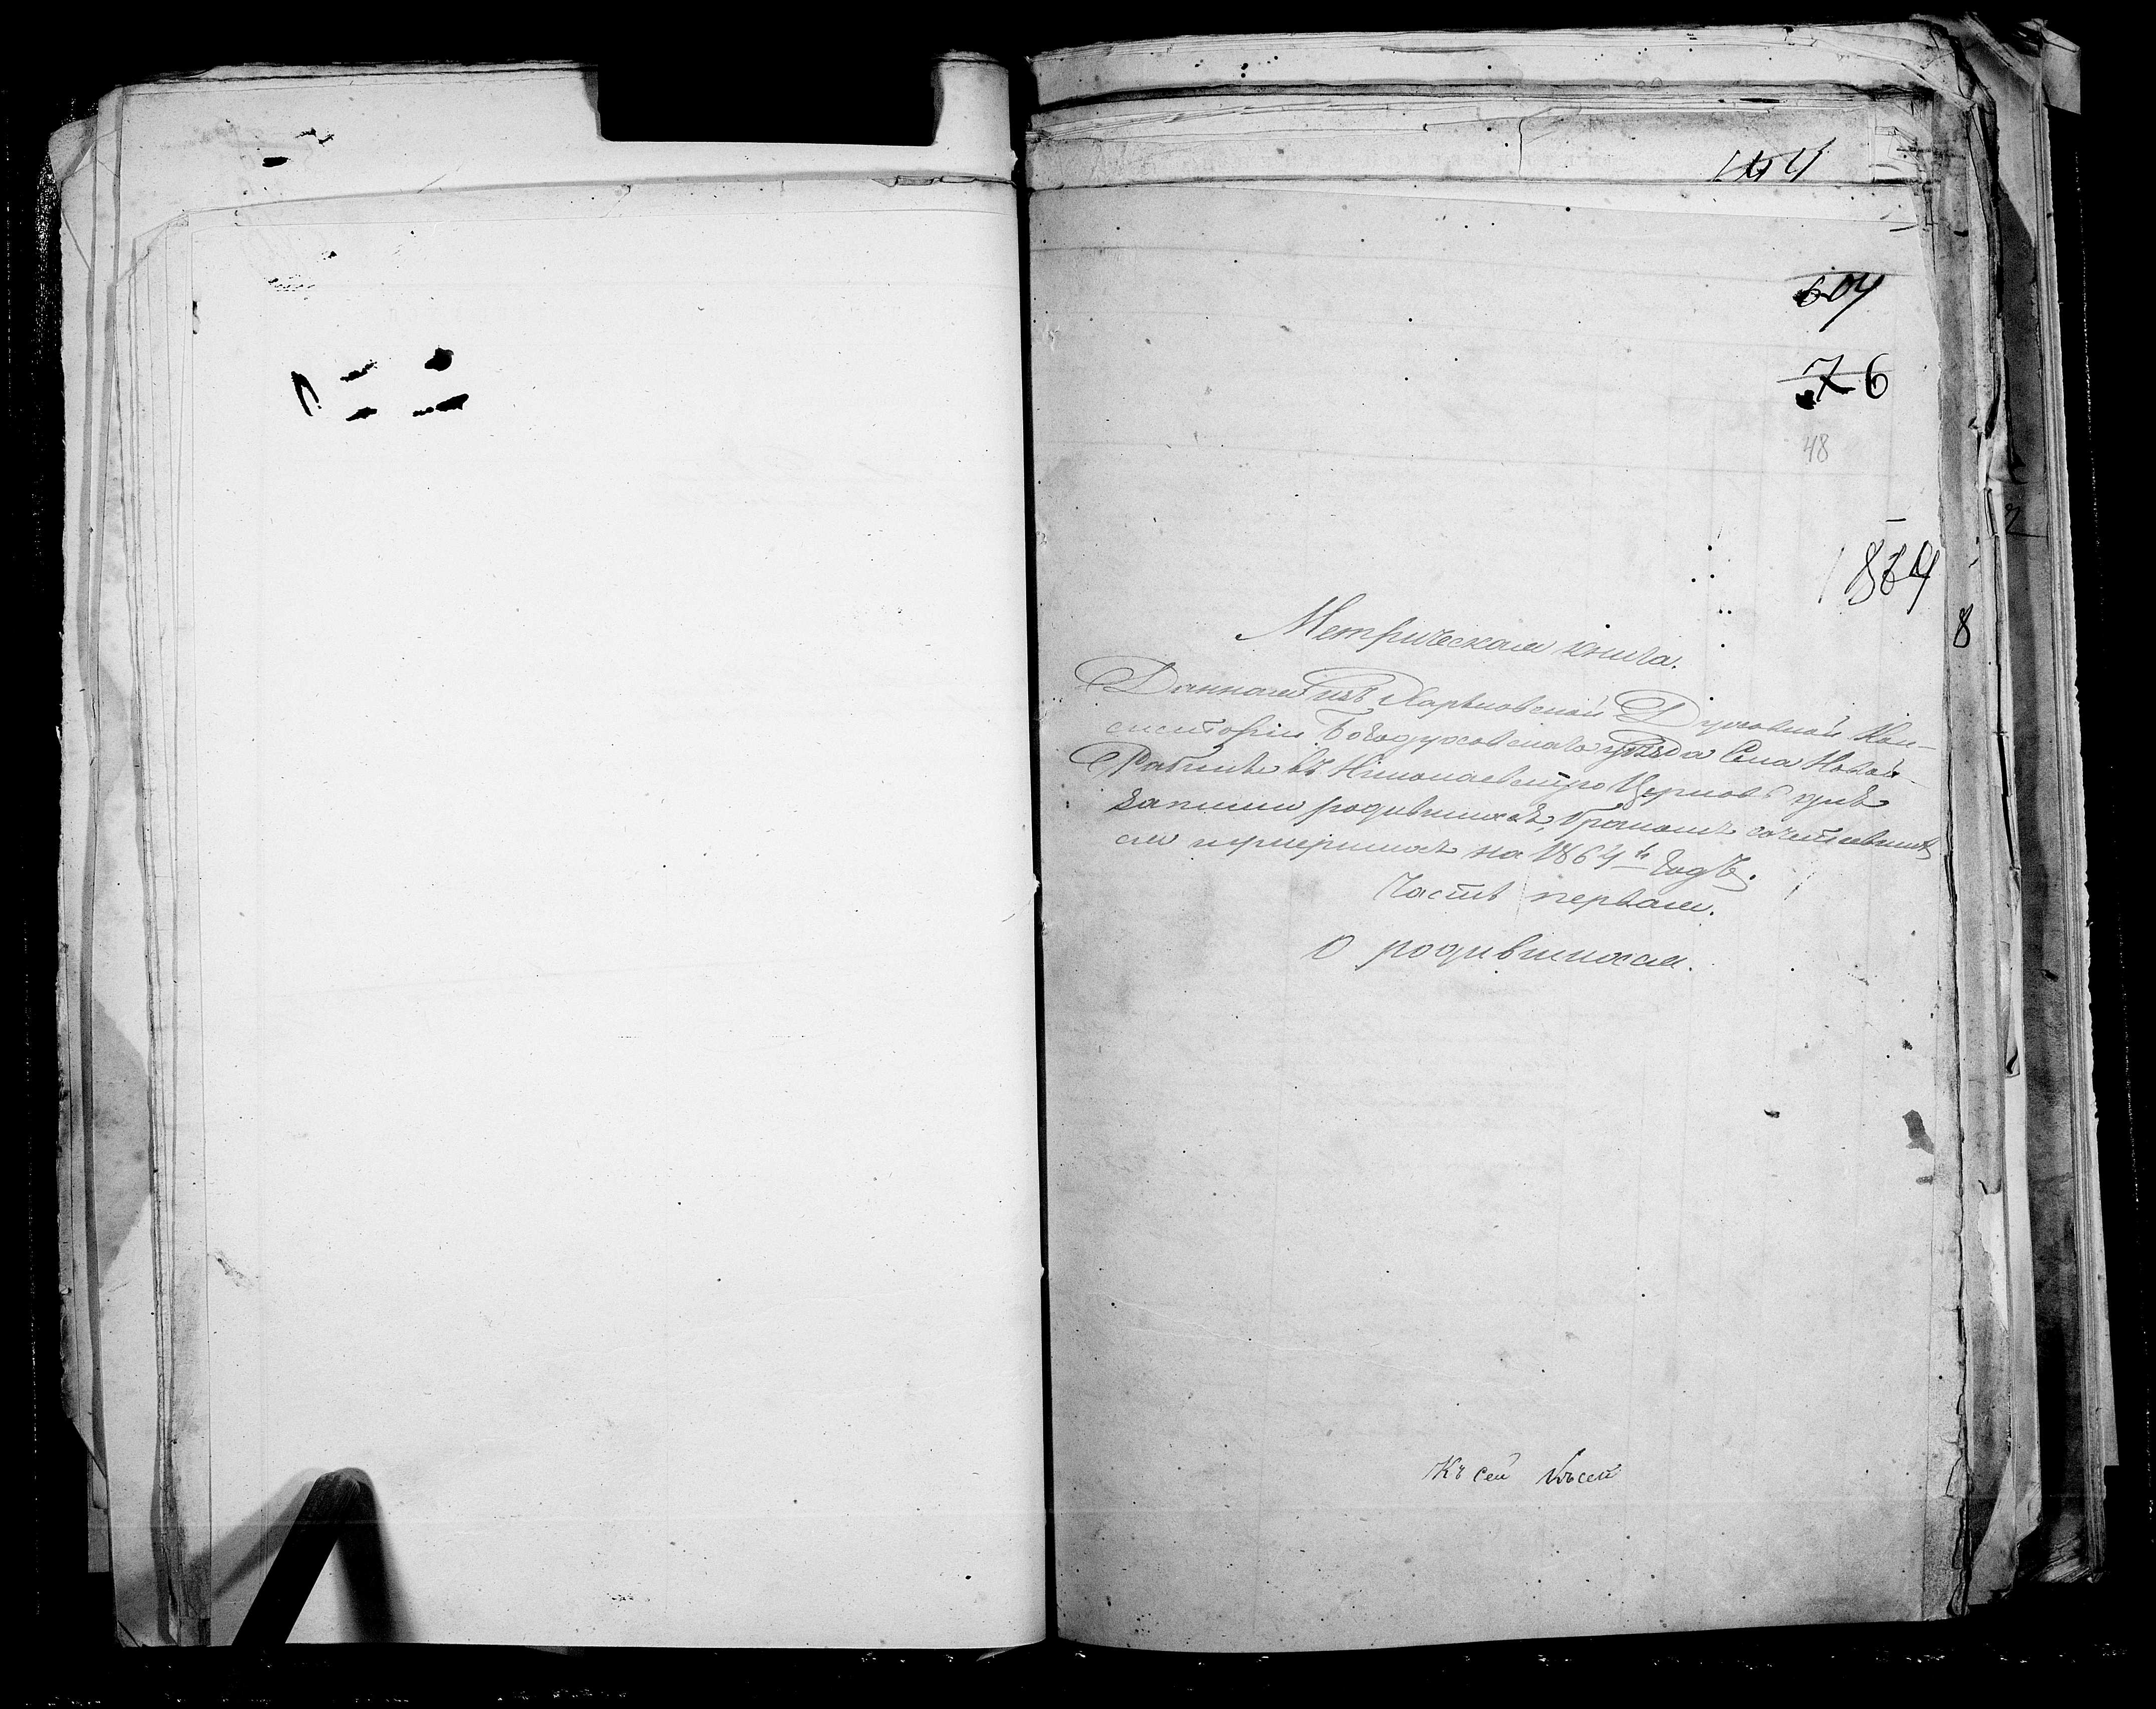 604
76
48
1864
8
Метрическая книга.
Данная изъ Харьковской Духовной Кон-
систоріи Богодуховскаго уѣзда Села Новой-
Рябины въ Николаевскую Церковь для
записи родившихся, бракомъ сочетавших
ся и умершихъ на 1864й годъ.
Часть первая.
О родившихся.
Къ сей Къ сей